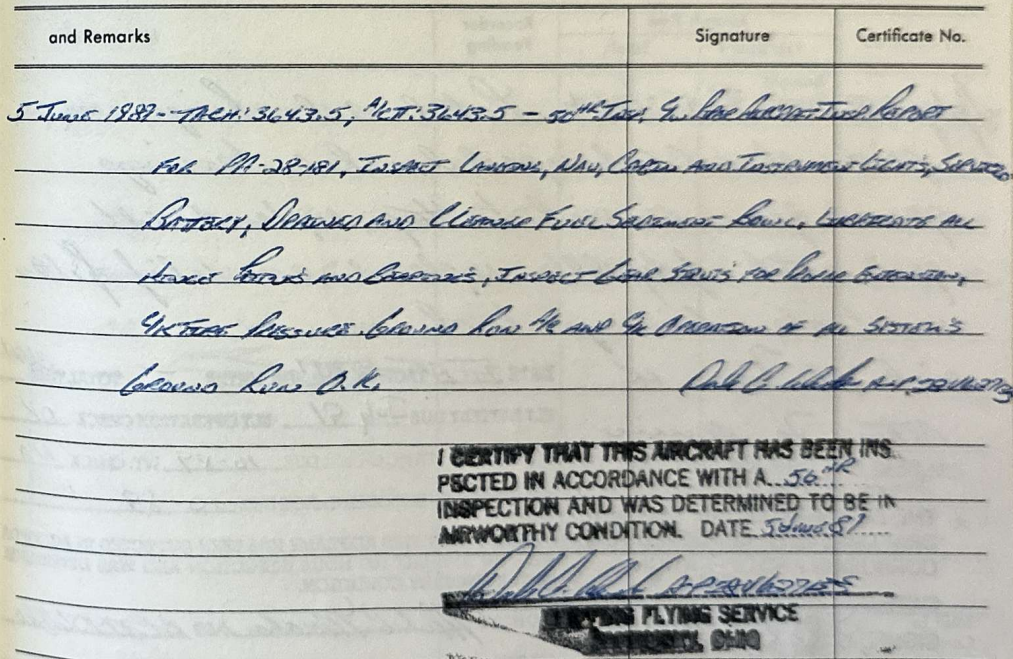 and Remarks Signature Certificate No.
5 June 1987-- TACH: 3643.5, A/CTT: 3643.5 - 50HR Insp, Per Aircraft Insp Report
For PA-28-181, Inspect Landing, Nav, Cabin and Instrument Lights, Serviced
Battery, Drained and Cleaned Fuel Sediment Bowl, Lubricate All
Hinge Points and Bearings, Inspect Gear Struts for Proper Extension,
C/K Tire Pressure. Ground Run A/C and C/K Operation of All System's
Ground Run O.K. A+P
I CERTIFY THAT THIS AIRCRAFT HAS BEEN INS
PECTED IN ACCORDANCE WITH A 50 HR
INSPECTION AND WAS DETERMINED TO BE IN
AIRWORTHY CONDITION. DATE 5 June 87
A+P
FLYING SERVICE
OHIO